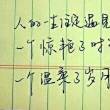 人的一生注定遇见
一个惊艳了时
一个温柔了岁月